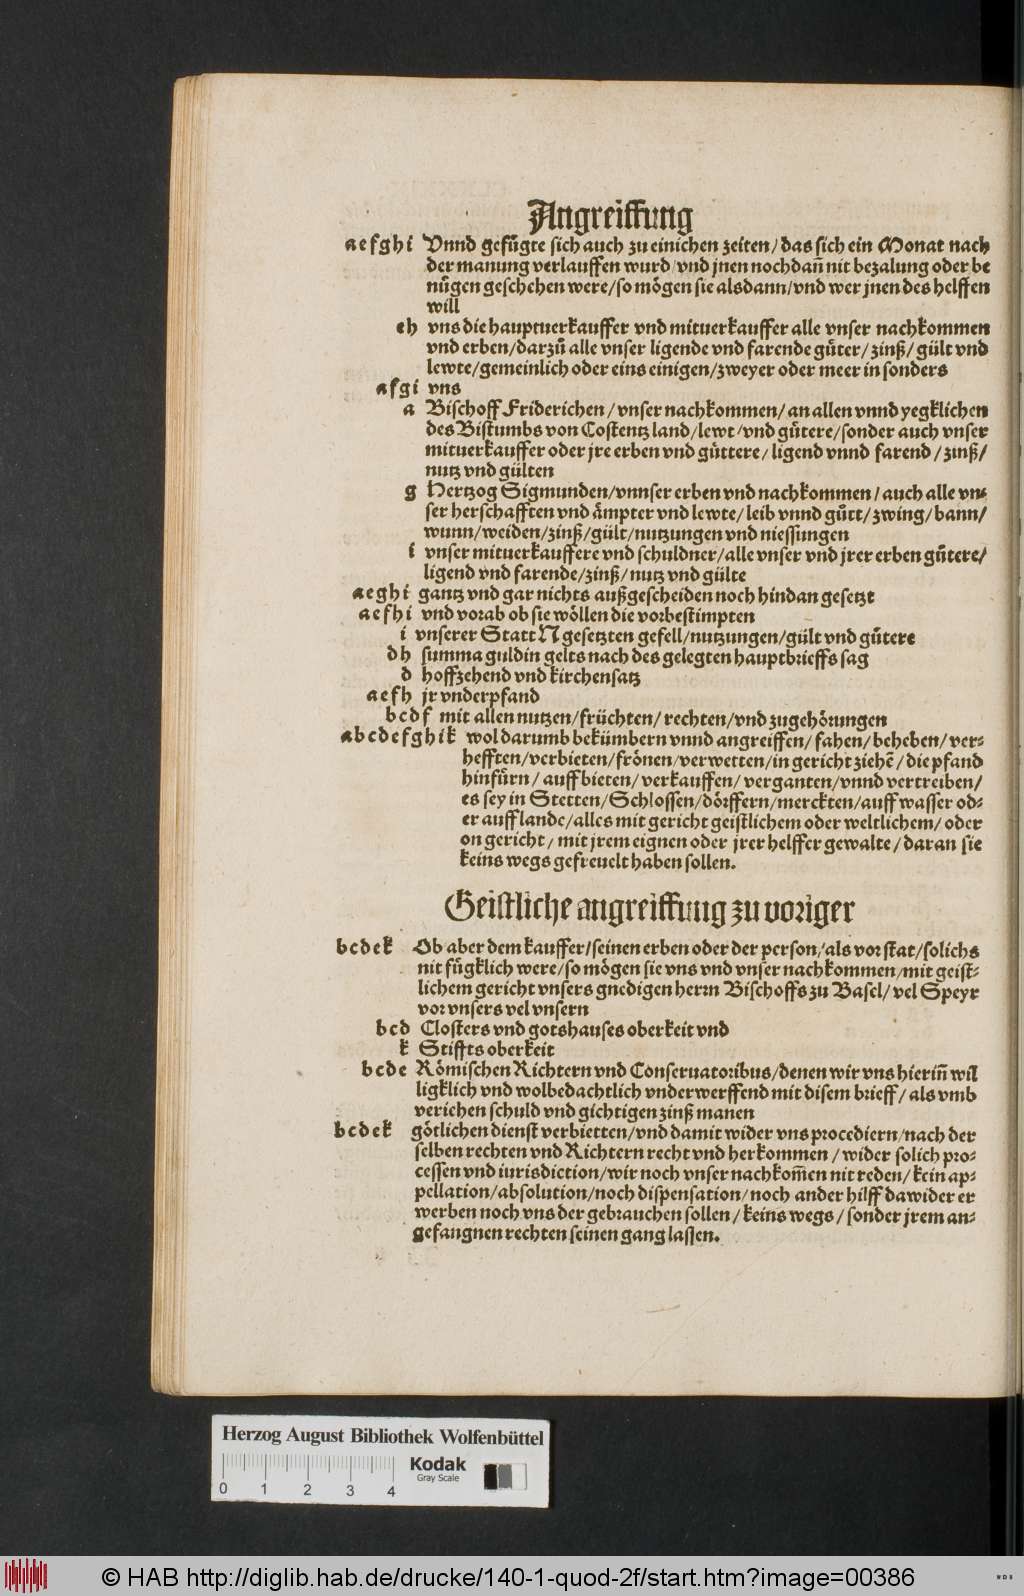 Angreiffung
a e f g h i Vnnd gefuͤgte sich auch zu einichen zeiten / das sich ein Monat nach
der manung verlauffen wurd / vnd jnen nochdañ nit bezalung oder be
nuͤgen geschehen were / so moͤgen sie alsdann / vnd wer jnen des helffen
will
e h vns die hauptuerkauffer vnd mituerkauffer alle vnser nachkommen
vnd erben / darzuͦ alle vnser ligende vnd farende guͤter / zinß / guͤlt vnd
lewte / gemeinlich oder eins einigen / zweyer oder meer in sonders
a f g i vns
a Bischoff Friderichen / vnser nachkommen / an allen vnnd yegklichen
des Bistumbs von Costentz land / lewt / vnd guͤtere / sonder auch vnser
mituerkauffer oder jre erben vnd guͤttere / ligend vnnd farend / zinß /
nutz vnd guͤlten
g Hertzog Sigmunden / vnnser erben vnd nachkommen / auch alle vn⸗
ser herschafften vnd aͤmpter vnd lewte / leib vnnd guͦtt / zwing / bann /
wunn / weiden / zinß / guͤlt / nutzungen vnd niessungen
i vnser mituerkauffere vnd schuldner / alle vnser vnd jrer erben guͤtere /
ligend vnd farende / zinß / nutz vnd guͤlte
a e g h i gantz vnd gar nichts außgescheiden noch hindan gesetzt
a e f h i vnd vorab ob sie woͤllen die vorbestimpten
i vnserer Statt N gesetzten gefell / nutzungen / guͤlt vnd guͤtere
d h summa guldin gelts nach des gelegten hauptbrieffs sag
d hoffzehend vnd kirchensatz
a e f h jr vnderpfand
b c d f mit allen nutzen / fruͤchten / rechten / vnd zugehoͤrungen
a b c d e f g h i k wol darumb bekuͤmbern vnnd angreiffen / fahen / beheben / ver⸗
hefften / verbieten / froͤnen / verwetten / in gericht ziehẽ / die pfand
hinfuͤrn / auff bieten / verkauffen / verganten / vnnd vertreiben /
es sey in Stetten / Schlossen / doͤrffern / merckten / auff wasser od⸗
er auff lande / alles mit gericht geistlichem oder weltlichem / oder
on gericht / mit jrem eignen oder jrer helffer gewalte / daran sie
keins wegs gefreuelt haben sollen.
Geistliche angreiffung zu voriger
b c d e k Ob aber dem kauffer / seinen erben oder der person / als vor stat / solichs
nit fuͤgklich were / so moͤgen sie vns vnd vnser nachkommen / mit geist⸗
lichem gericht vnsers gnedigen herrn Bischoffs zu Basel / vel Speyr
vor vnsers vel vnsern
b c d Closters vnd gotshauses oberkeit vnd
k Stiffts oberkeit
b c d e Roͤmischen Richtern vnd Conseruatoribus / denen wir vns hierinñ wil
ligklich vnd wolbedachtlich vnderwerffend mit disem brieff / als vmb
verichen schuld vnd gichtigen zinß manen
b c d e k goͤtlichen dienst verbietten / vnd damit wider vns procediern / nach der
selben rechten vnd Richtern recht vnd herkommen / wider solich pro⸗
cessen vnd iurisdiction / wir noch vnser nachkom̃en nit reden / kein ap⸗
pellation / absolution / noch dispensation / noch ander hilff dawider er
werben noch vns der gebrauchen sollen / keins wegs / sonder jrem an⸗
gefangnen rechten seinen gang lassen.
Herzog August Bibliothek Wolfenbüttel
Kodak
Gray Scale
0 1 2 3 4
© HAB http://diglib.hab.de/drucke/140-1-quod-2f/start.htm?image=00386